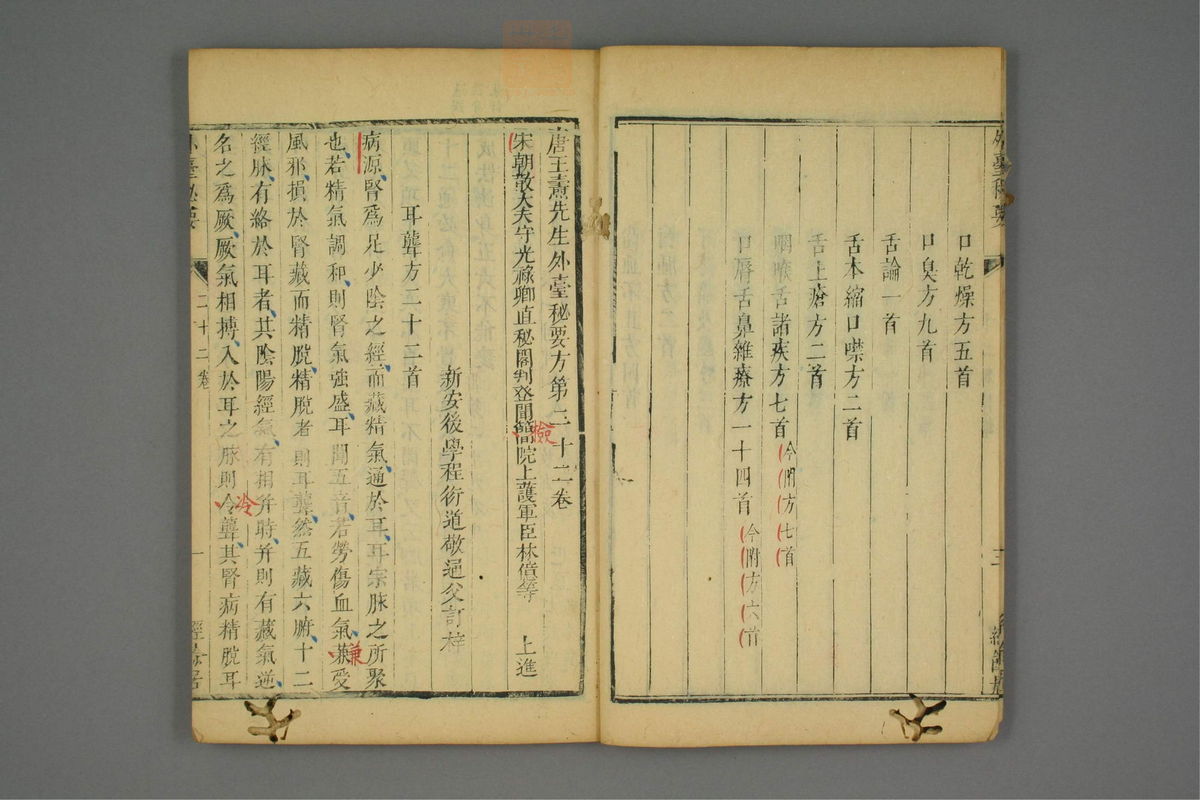 外臺秘要
口乾燥方五首
口臭方九首
舌論一首
舌本縮口噤方二首
舌上瘡方二首
咽喉舌諸疾方七首今附方七首
口脣舌鼻雜療方一十四首今附方六首
唐王燾先生外臺秘要方第二十二卷
宋朝散大夫守光祿卿直秘閣判登聞簡院上護軍臣林億等 上進
檢
新安後學程衍道敬通父訂梓
耳聾方二十二首
病源腎爲足少陰之經而藏精氣通於耳耳宗脉之所聚
也若精氣調和則腎氣強盛耳聞五音若勞傷血氣兼受
兼
風邪損於腎藏而精脫精脫者則耳聾然五藏六腑十二
經脉有絡於耳者其陰陽經氣有相并時并則有藏氣逆
名之爲厥厥氣相搏入於耳之脉則令聾其腎病精脫耳
冷
外臺秘要
二十二卷
一
經餘居